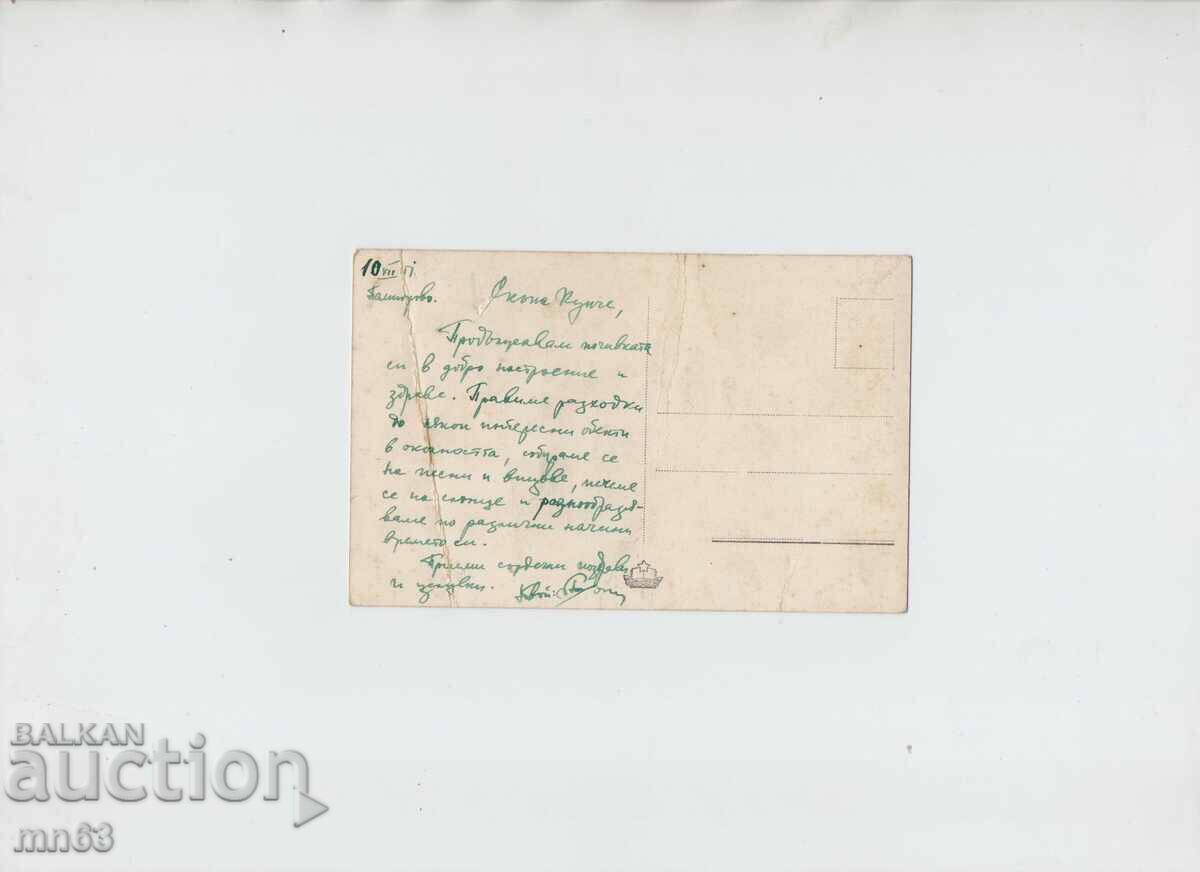 10 VII 51.
Скъпа Кунче,
Продължавам почивката
си в добро настроение и
здраве. Правиме разходки
до някои интересни обекти
в околността, събираме се
на песни и вицове, печеме
се на слънце и разнообразя-
ваме по различни начини
времето си.
Приеми сърдечни поздрави
и целувки. Твой:
BALKAN
auction
mn63